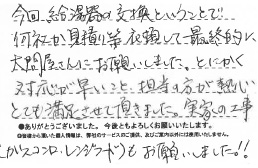 今回、給湯器の交換ということで
何社か見積り等依頼して最終的に
大問屋さんにお願いしました。とにかく
対応が早いこと、担当の方が熱心
とても満足させて頂きました。実家の工事
●ありがとうございました。今後ともよろしくお願いいたします。
(ガスコンロ・レンジフード)もお願いしました!!